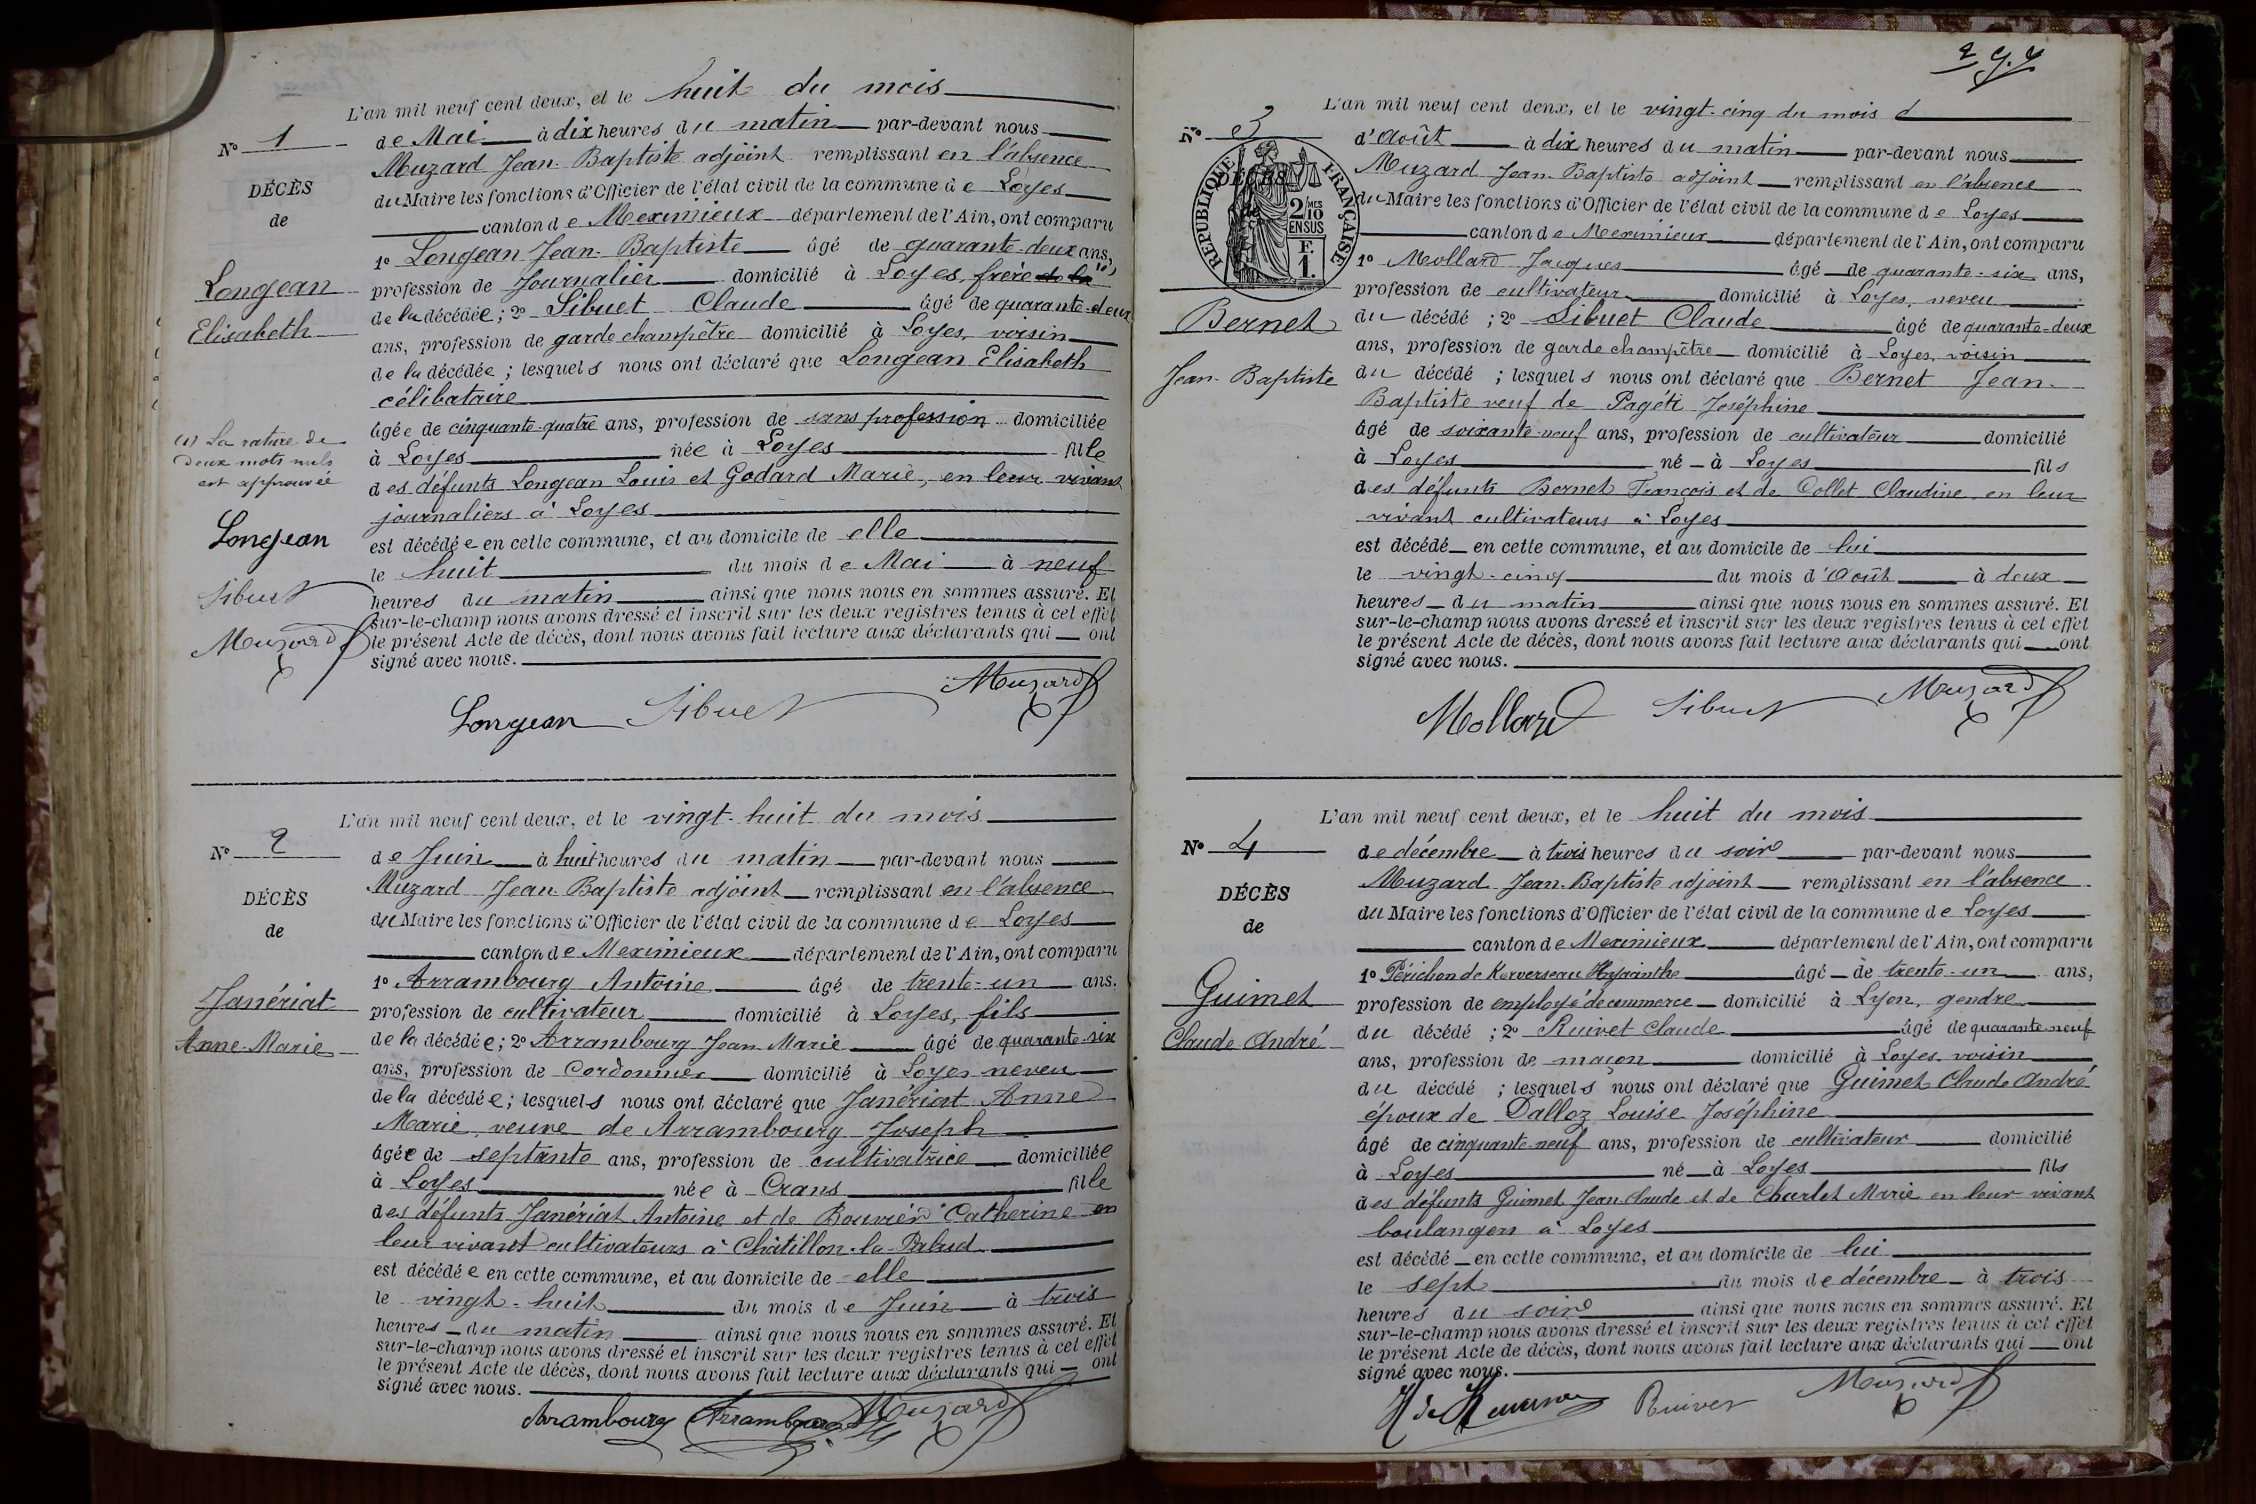 L'an mil neuf cent deux, et le huit du mois
N° 1
de Mai à dix heures du matin par-devant nous
Muzard Jean-Baptiste adjoint remplissant en l'absence
DÉCÈS
du Maire les fonctions d'Officier de l'état civil de la commune de Loyes
de
canton de Meximieux département de l'Ain, ont comparu
1° Longean Jean-Baptiste âgé de quarante-deux ans,
Longean
profession de journalier domicilié à Loyes, frère de la (1)
Elisabeth
de la décédée ; 2° Sibuet Claude âgé de quarante-deux
ans, profession de garde champêtre domicilié à Loyes, voisin
de la décédée ; lesquels nous ont déclaré que Longean Elisabeth
célibataire
âgée de cinquante-quatre ans, profession de sans profession domiciliée
(1) La rature de
deux mots nuls
est approuvée
à Loyes née à Loyes fille
des défunts Longean Louis et Godard Marie, en leur vivant
journaliers à Loyes
Longean
est décédée en cette commune, et au domicile de elle
le huit du mois de Mai à neuf
Sibuet
heures du matin ainsi que nous nous en sommes assuré. Et
sur-le-champ nous avons dressé et inscrit sur les deux registres tenus à cet effet
Muzard
le présent Acte de décès, dont nous avons fait lecture aux déclarants qui ont
signé avec nous.
Longean Sibuet Muzard
L'an mil neuf cent deux, et le vingt-huit du mois
N° 2
de Juin à huit heures du matin par-devant nous
Muzard Jean-Baptiste adjoint remplissant en l'absence
DÉCÈS
du Maire les fonctions d'Officier de l'état civil de la commune de Loyes
de
canton de Meximieux département de l'Ain, ont comparu
1° Arrambourg Antoine âgé de trente-un ans.
Janériat
profession de cultivateur domicilié à Loyes, fils
Anne-Marie
de la décédée ; 2° Arrambourg Jean Marie âgé de quarante-six
ans, profession de Cordonnier domicilié à Loyes neveu
de la décédée ; lesquels nous ont déclaré que Janériat Anne
Marie, veuve de Arrambourg Joseph
âgée de septante ans, profession de cultivatrice domiciliée
à Loyes née à Crans fille
des défunts Janériat Antoine et de Bouvier Catherine en
leur vivant cultivateurs à Châtillon-la-Palud
est décédée en cette commune, et au domicile de elle
le vingt-huit du mois de Juin à trois
heures du matin ainsi que nous nous en sommes assuré. Et
sur-le-champ nous avons dressé et inscrit sur les deux registres tenus à cet effet
le présent Acte de décès, dont nous avons fait lecture aux déclarants qui ont
signé avec nous.
Arrambourg Arrambourg Muzard
L'an mil neuf cent deux, et le vingt-cinq du mois d
N° 3
d'Août à dix heures du matin par-devant nous
Muzard Jean-Baptiste adjoint remplissant en l'absence
DÉCÈS
RÉPUBLIQUE FRANÇAISE
2/10 MES
EN SUS
F.
1.
du Maire les fonctions d'Officier de l'état civil de la commune de Loyes
canton de Meximieux département de l'Ain, ont comparu
1° Mollard Jacques âgé de quarante-six ans,
profession de cultivateur domicilié à Loyes, neveu
Bernet
du décédé ; 2° Sibuet Claude âgé de quarante-deux
ans, profession de garde champêtre domicilié à Loyes, voisin
Jean-Baptiste
du décédé ; lesquels nous ont déclaré que Bernet Jean-
Baptiste veuf de Joséphine
âgé de soixante-neuf ans, profession de cultivateur domicilié
à Loyes né à Loyes fils
des défunts Bernet François et de Collet Claudine en leur
vivant cultivateurs à Loyes
est décédé en cette commune, et au domicile de lui
le vingt-cinq du mois d'Août à deux
heures du matin ainsi que nous nous en sommes assuré. Et
sur-le-champ nous avons dressé et inscrit sur les deux registres tenus à cet effet
le présent Acte de décès, dont nous avons fait lecture aux déclarants qui ont
signé avec nous.
Mollard Sibuet Muzard
L'an mil neuf cent deux, et le huit du mois
N° 4
de décembre à trois heures du soir par-devant nous
Muzard Jean-Baptiste adjoint remplissant en l'absence
DÉCÈS
du Maire les fonctions d'Officier de l'état civil de la commune de Loyes
de
canton de Meximieux département de l'Ain, ont comparu
1° Périchon de Kerverseau Hyacinthe âgé de trente-un ans,
Guimet
profession de employé de commerce domicilié à Lyon, gendre
Claude André
du décédé ; 2° Ruivet Claude âgé de quarante-neuf
ans, profession de maçon domicilié à Loyes voisin
du décédé ; lesquels nous ont déclaré que Guimet Claude André
époux de Dalloz Louise Joséphine
âgé de cinquante-neuf ans, profession de cultivateur domicilié
à Loyes né à Loyes fils
des défunts Guimet Jean Claude et de Charlet Marie en leur vivant
boulangers à Loyes
est décédé en cette commune, et au domicile de lui
le sept du mois de décembre à trois
heures du soir ainsi que nous nous en sommes assuré. Et
sur-le-champ nous avons dressé et inscrit sur les deux registres tenus à cet effet
le présent Acte de décès, dont nous avons fait lecture aux déclarants qui ont
signé avec nous.
Ruivet Muzard